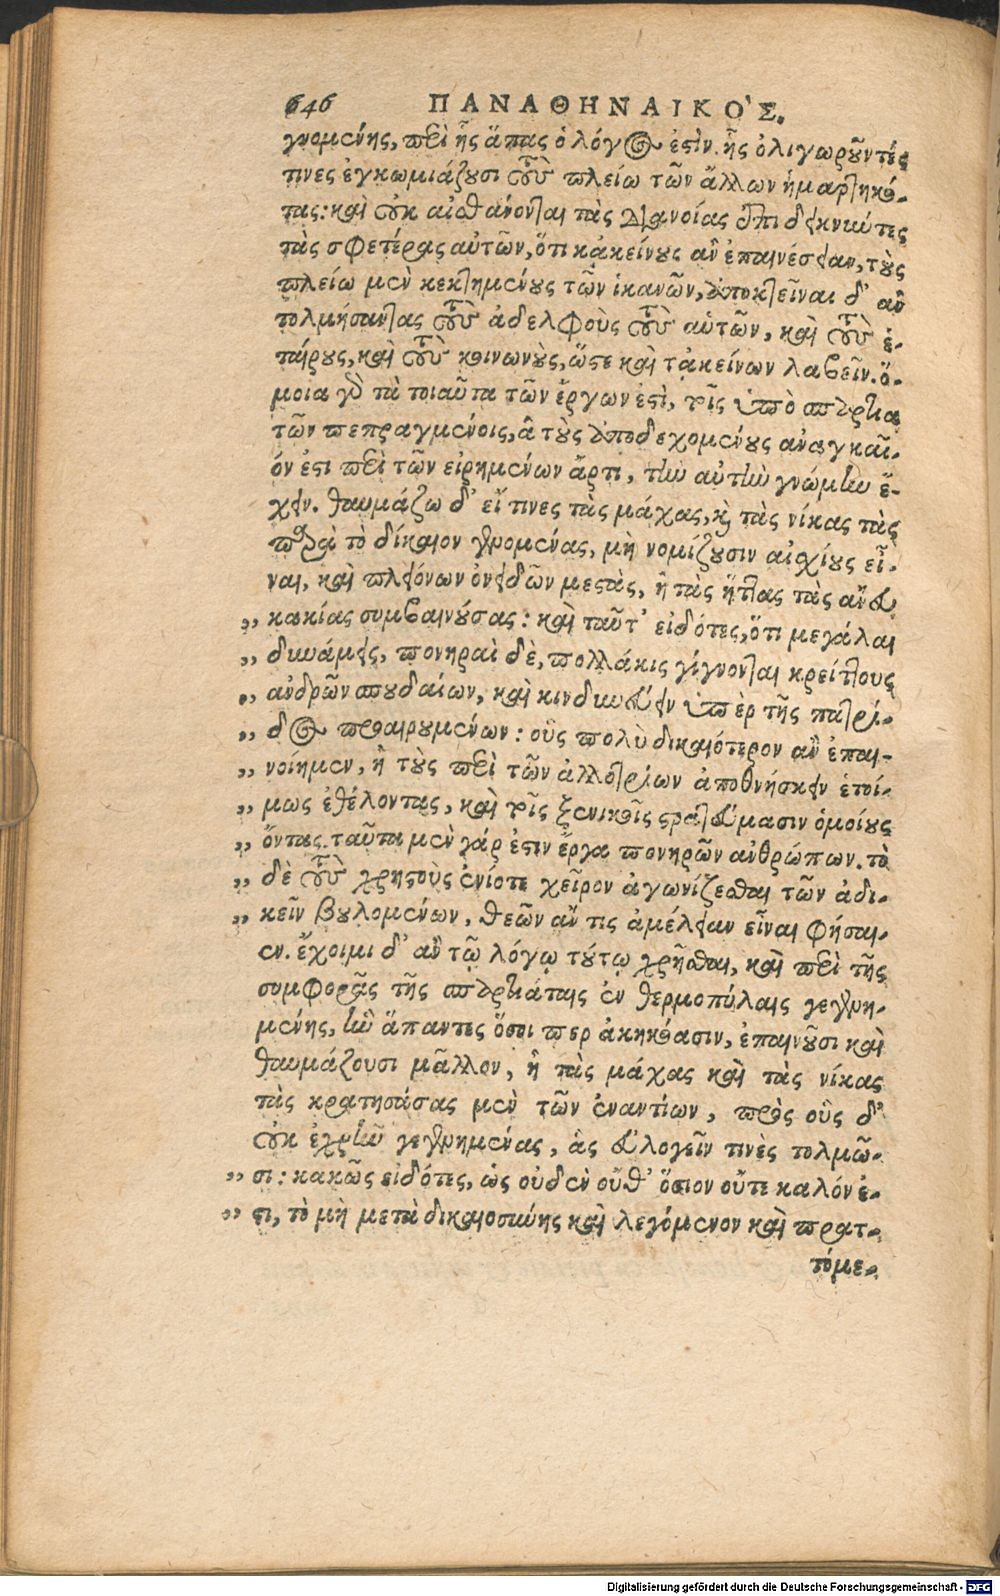 646 ΠΑΝΑΘΗΝΑΙΚΟ'Σ.
γνομένης, περὶ ἧς ἅπας ὁ λόγος ἐστίν. ἧς ὀλιγωροῦντές
τινες ἐγκωμιάζουσι τοὺς πλείω τῶν ἄλλων ἡμαρτηκό-
τας: καὶ οὐκ αἰσθάνονται τὰς διανοίας ἐπιδεικνύντες
τὰς σφετέρας αὐτῶν, ὅτι κἀκείνους ἂν ἐπαινέσειαν, τοὺς
πλείω μὲν κεκτημένους τῶν ἱκανῶν, ἀποκτεῖναι δ' ἂν
τολμήσαντας τοὺς ἀδελφοὺς τοὺς αὑτῶν, καὶ τοὺς ἑ-
ταίρους, καὶ τοὺς κοινωνοὺς, ὥστε καὶ τἀκείνων λαβεῖν. ὅ-
μοια γὰρ τὰ τοιαῦτα τῶν ἔργων ἐστὶ, τοῖς ὑπὸ σπαρτια
τῶν πεπραγμένοις, ἃ τοὺς ἀποδεχομένους ἀναγκαῖ-
όν ἐστι περὶ τῶν εἰρημένων ἄρτι, τὴν αὐτὴν γνώμην ἔ-
χειν. θαυμάζω δ' εἴ τινες τὰς μάχας, καὶ τὰς νίκας τὰς
παρὰ τὸ δίκαιον γενομένας, μὴ νομίζουσιν αἰσχίους εἶ-
ναι, καὶ πλειόνων ὀνειδῶν μεστὰς, ἢ τὰς ἥττας τὰς ἄνευ
„ κακίας συμβαινούσας: καὶ ταῦτ' εἰδότες, ὅτι μεγάλαι
„ δυνάμεις, πονηραὶ δὲ, πολλάκις γίγνονται κρείττους
„ ἀνδρῶν σπουδαίων, καὶ κινδυνεύειν ὑπὲρ τῆς πατρί-
„ δος προαιρουμένων: οὓς πολὺ δικαιότερον ἂν ἐπαι-
„ νοιημεν, ἢ τοὺς περὶ τῶν ἀλλοτρίων ἀποθνήσκειν ἑτοί-
„ μως ἐθέλοντας, καὶ τοῖς ξενικοῖς στρατεύμασιν ὁμοίους
„ ὄντας. ταῦτα μὲν γάρ ἐστιν ἔργα πονηρῶν ἀνθρώπων. τὸ
„ δὲ τοὺς χρηστοὺς ἐνίοτε χεῖρον ἀγωνίζεσθαι τῶν ἀδι-
„ κεῖν βουλομένων, θεῶν ἄν τις ἀμέλειαν εἶναι φήσαι-
εν. ἔχοιμι δ' ἂν τῷ λόγῳ τούτῳ χρῆσθαι, καὶ περὶ τῆς
συμφορᾶς τῆς σπαρτιάταις ἐν θερμοπύλαις γεγενη-
μένης, ἣν ἅπαντες ὅσοι περ ἀκηκόασιν, ἐπαινοῦσι καὶ
θαυμάζουσι μᾶλλον, ἢ τὰς μάχας καὶ τὰς νίκας
τὰς κρατησάσας μὲν τῶν ἐναντίων, πρὸς οὓς δ'
οὐκ ἐχρῆν γεγενημένας, ἃς εὐλογεῖν τινὲς τολμῶ-
„ σι: κακῶς εἰδότες, ὡς οὐδὲν οὔθ' ὅσιον οὔτε καλόν ἐ-
„ στι, τὸ μὴ μετὰ δικαιοσύνης καὶ λεγόμενον καὶ πρατ-
τόμε-
Digitalisierung gefördert durch die Deutsche Forschungsgemeinschaft - DFG